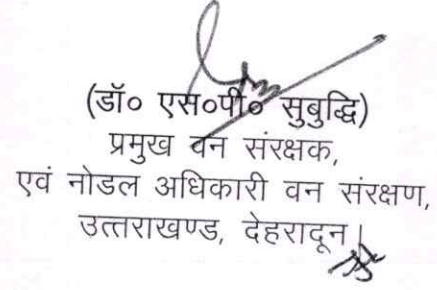 (डॉ० एस०पी० सुबुद्धि)
प्रमुख वन संरक्षक,
एवं नोडल अधिकारी वन संरक्षण,
उत्तराखण्ड, देहरादून।